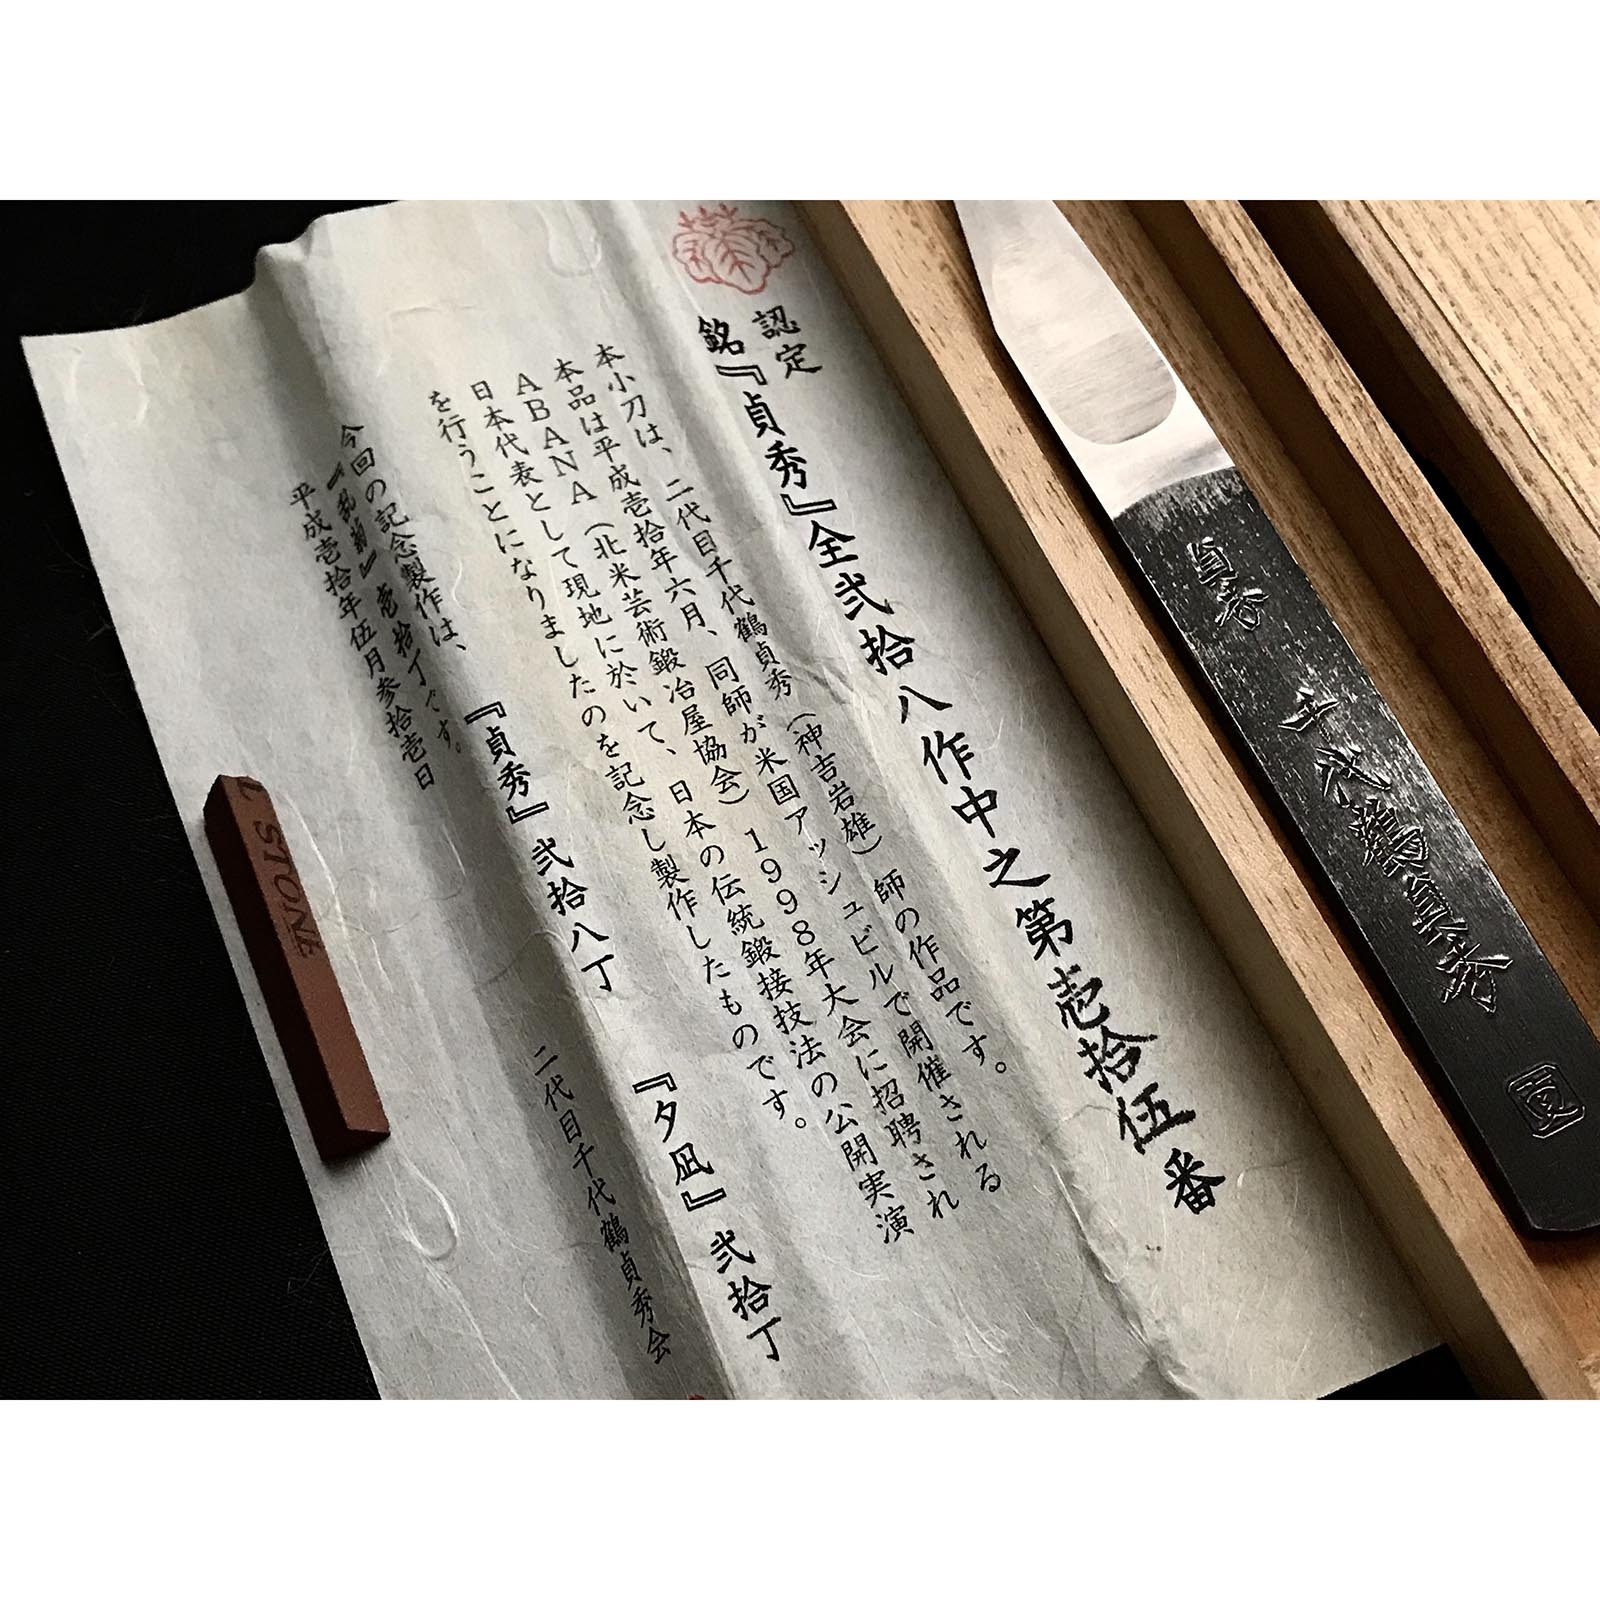 認定
銘『貞秀』全弐拾八作中之第壱拾伍番
本小刀は、二代目千代鶴貞秀（神吉岩雄）師の作品です。
本品は平成壱拾年六月、同師が米国アッシュビルで開催される
ＡＢＡＮＡ（北米芸術鍛冶屋協会）１９９８年大会に招聘され
日本代表として現地に於いて、日本の伝統鍛接技法の公開実演
を行うことになりましたのを記念し製作したものです。
今回の記念製作は、『貞秀』弐拾八丁『夕凪』弐拾丁
壱拾丁です。
平成壱拾年伍月参拾壱日
二代目千代鶴貞秀会
貞秀
千代鶴貞秀
STONE